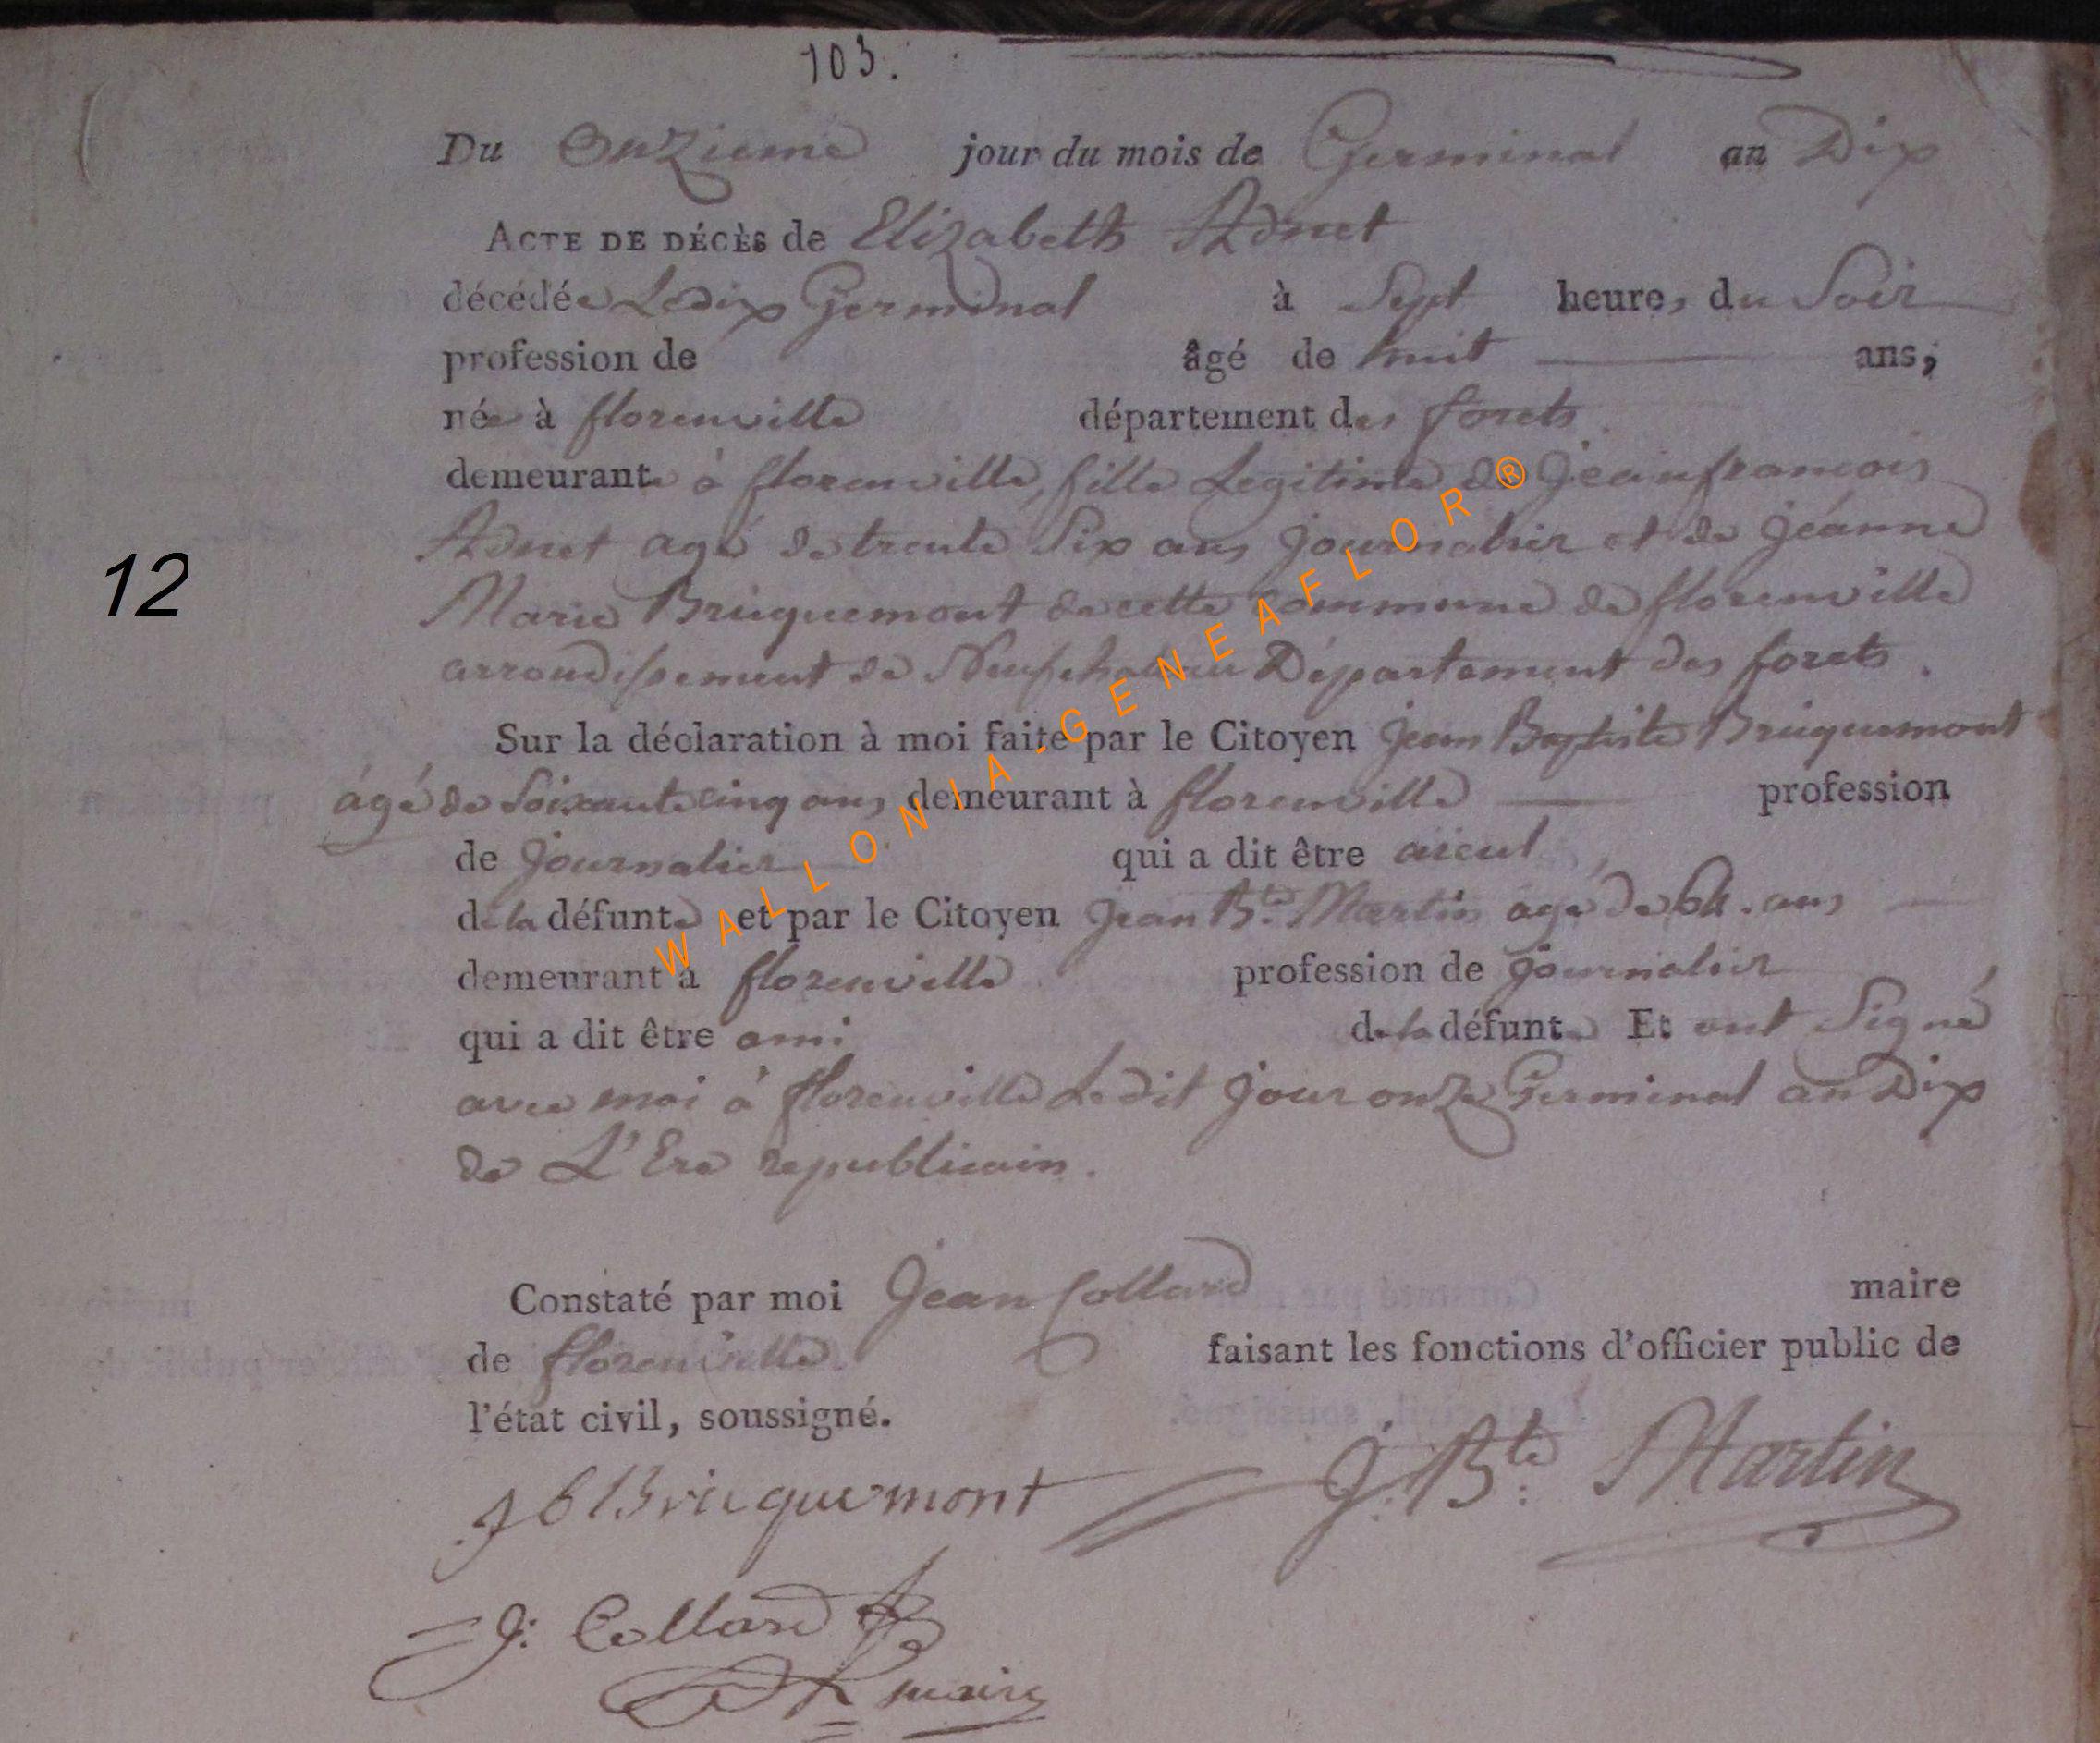 103.
Du Onzieme jour du mois de Germinal an Dix
ACTE DE DÉCÈS de Elizabeth Adnet
décédée Le dix Germinal à Sept heures du Soir
profession de âgé de huit ans,
née à florenville département des forets
demeurante à florenville, fille Legitime de Jean francois
Adnet agé de trente Six ans journalier et de jeanne
Marie Bricquemont de cette commune de florenville
12
arrondissement de Neufchateau Département des forets.
Sur la déclaration à moi faite par le Citoyen jean Baptiste Bricquemont
ágé de Soixante cinq ans, demeurant à florenville profession
de journalier qui a dit être aieul
de la défunte et par le Citoyen jean Bte. Martin agé de 64. ans
demeurant à florenville profession de journalier
qui a dit être ami de la défunte Et ont Signé
avec moi à florenville Ledit jour onze Germinal an Dix
de L'Ere republicain.
Constaté par moi Jean Collard maire
de florenville faisant les fonctions d'officier public de
l'état civil, soussigné.
J b Bricquemont J. Bte: Martin
J: Collard
maire
WALLONIA-GENEAFLOR®